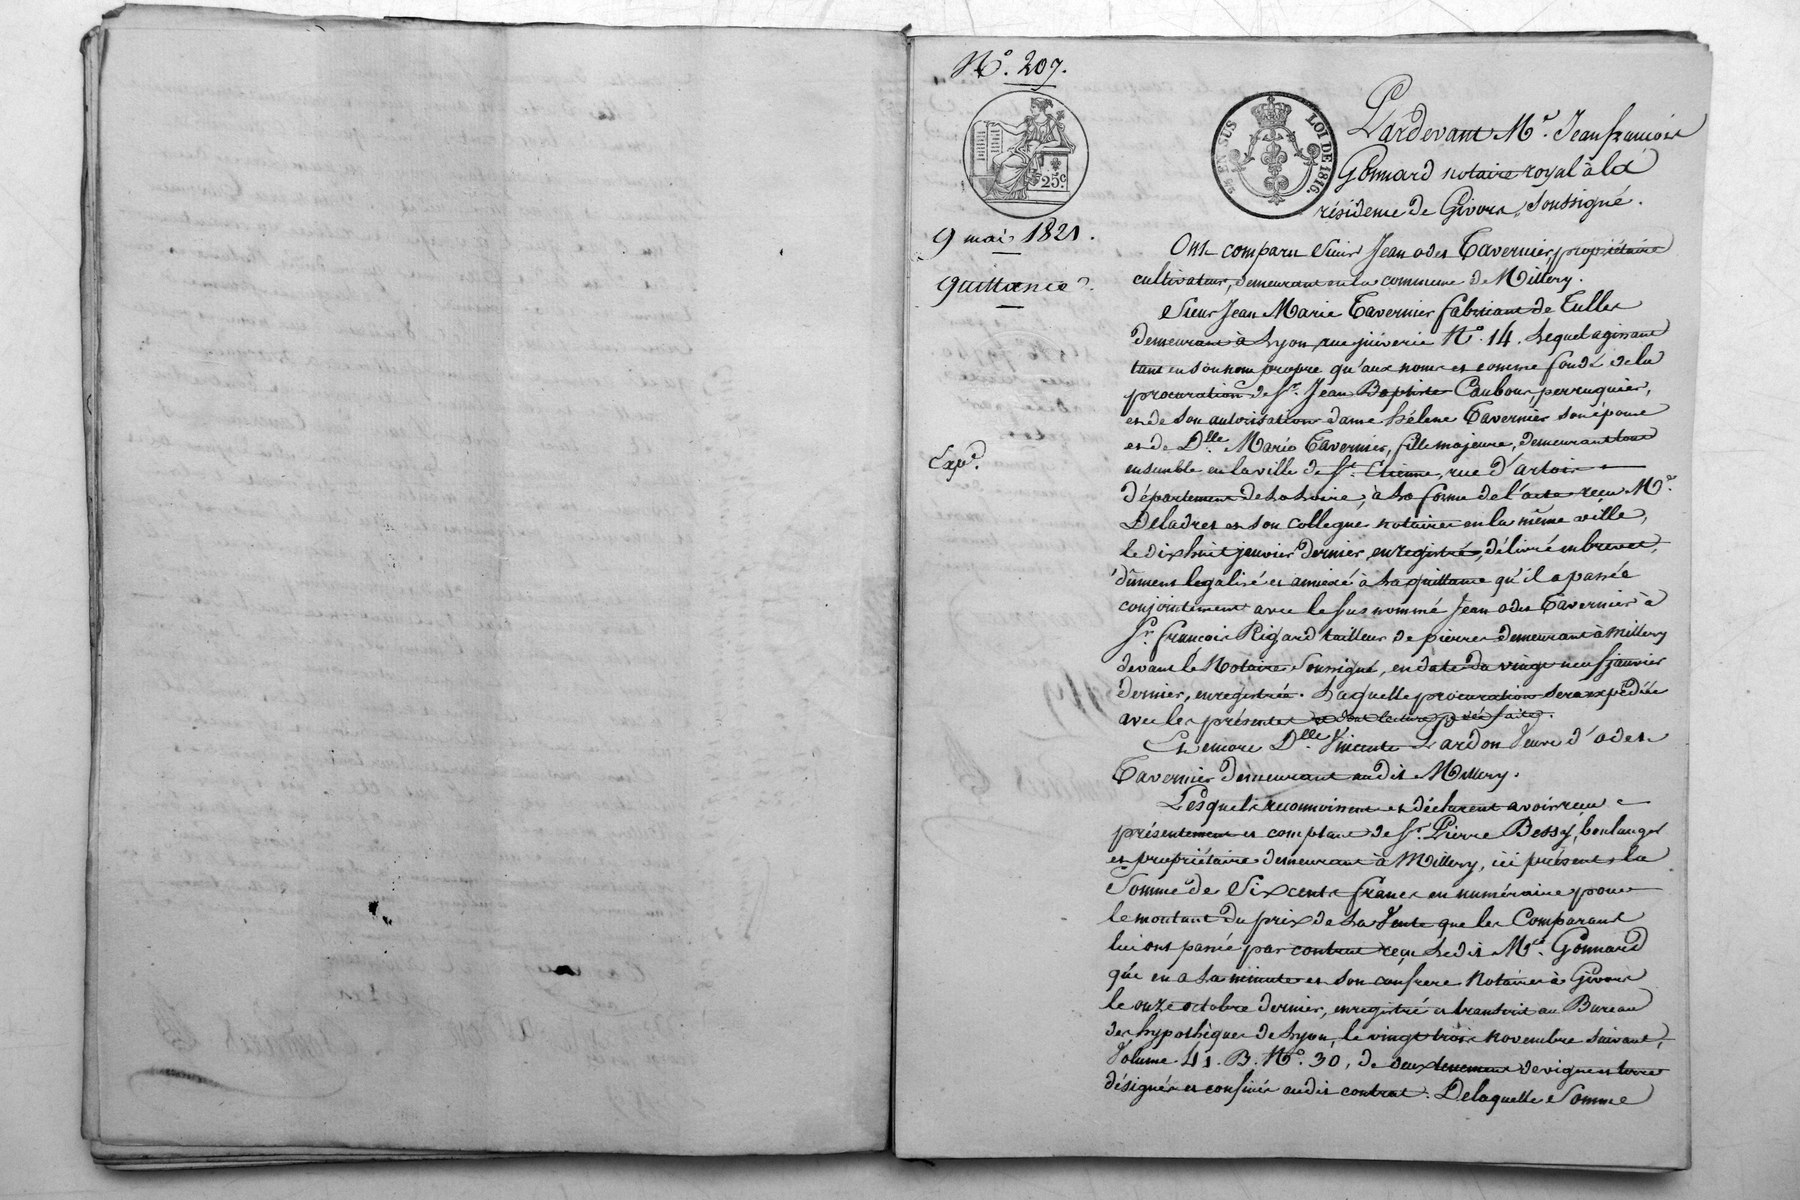 N.° 207.
25 EN SUS LOI DE 1816.
25c
9 mai 1821.
quittance.
Exp.é
Pardevant M.e Jean françois
Gonnard notaire royal à la
résidence de Givors, soussigné.
Ont comparu Sieur Jean odes Tavernier, propriétaire
cultivateur, demeurant en la commune de Millery.
Sieur Jean Marie Tavernier fabricant de Tulles
demeurant à Lyon, rue juiverie N.° 14. Lequel agissant
tant en son nom propre qu'aux noms et comme fondé de la
procuration de S.r Jean Baptiste Coubour, perruquier,
et de son autorisation dame hélène Tavernier son épouse
et de D.lle Marie Tavernier, fille majeure, demeurant tous
ensemble en la ville de S.t Etienne, rue d'artois
département de la Loire, à la forme de l'acte reçu M.e
Deladret et son collegue notaires en la même ville,
le dix huit janvier dernier, enregistré, délivré en brevet,
dûment légalisé et annexé à la quittance qu'il a passée
conjointement avec le sus nommé Jean odes Tavernier à
S.r françois Rigard tailleur de pierres demeurant à Millery
devant le Notaire soussigné, en date du vingt neuf janvier
dernier, enregistrée. Laquelle procuration sera expédiée
avec les présentes
Et encore D.lle Vincente Lardon Veuve d'odet
Tavernier demeurant audit Millery.
Lesquels reconnoissent et déclarent avoir reçu
présentement et comptant de S.r Pierre Bessy, boulanger
et propriétaire demeurant à Millery, ici présent, la
Somme de Six cents francs en numéraire pour
le montant du prix de la Vente que les Comparans
lui ont passée par contrat reçu ledit M.e Gonnard
qui en a la minute et son confrere Notaires à Givors
le onze octobre dernier, enregistré et transcrit au Bureau
des hypothèques de Lyon, le vingt trois novembre suivant,
Volume 41. B. N.° 30, de deux tenemens de vigne et terre
désignés et confinés audit contrat. De laquelle Somme